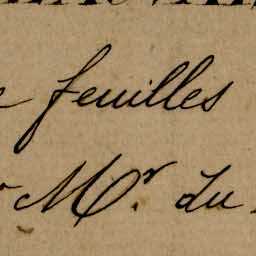 feuilles
Mr. Du